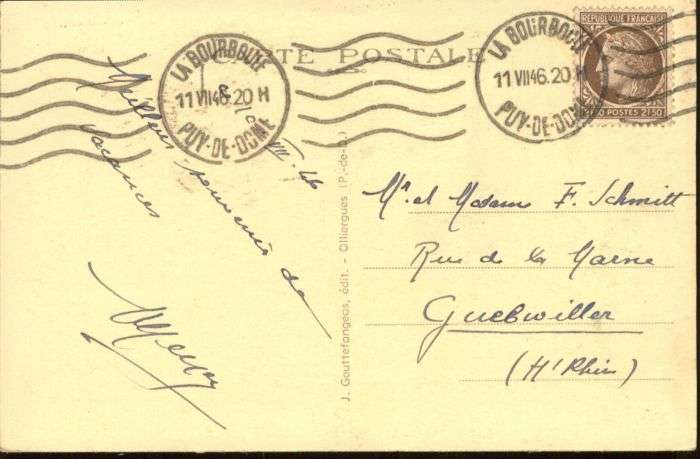 CARTE POSTALE
LA BOURBOULE
11 VII 46. 20 H
PUY-DE-DOME
LA BOURBOULE
11 VII 46. 20 H
PUY-DE-DOME
REPUBLIQUE FRANÇAISE
POSTES 2f50
VII 46
Meilleurs souvenirs de
vacances
J. Gouttefangeas, édit. - Olliergues (P.-de-D.)
Mr. et Madame F. Schmitt
Rue de la Marne
Guebwiller
(Ht Rhin)